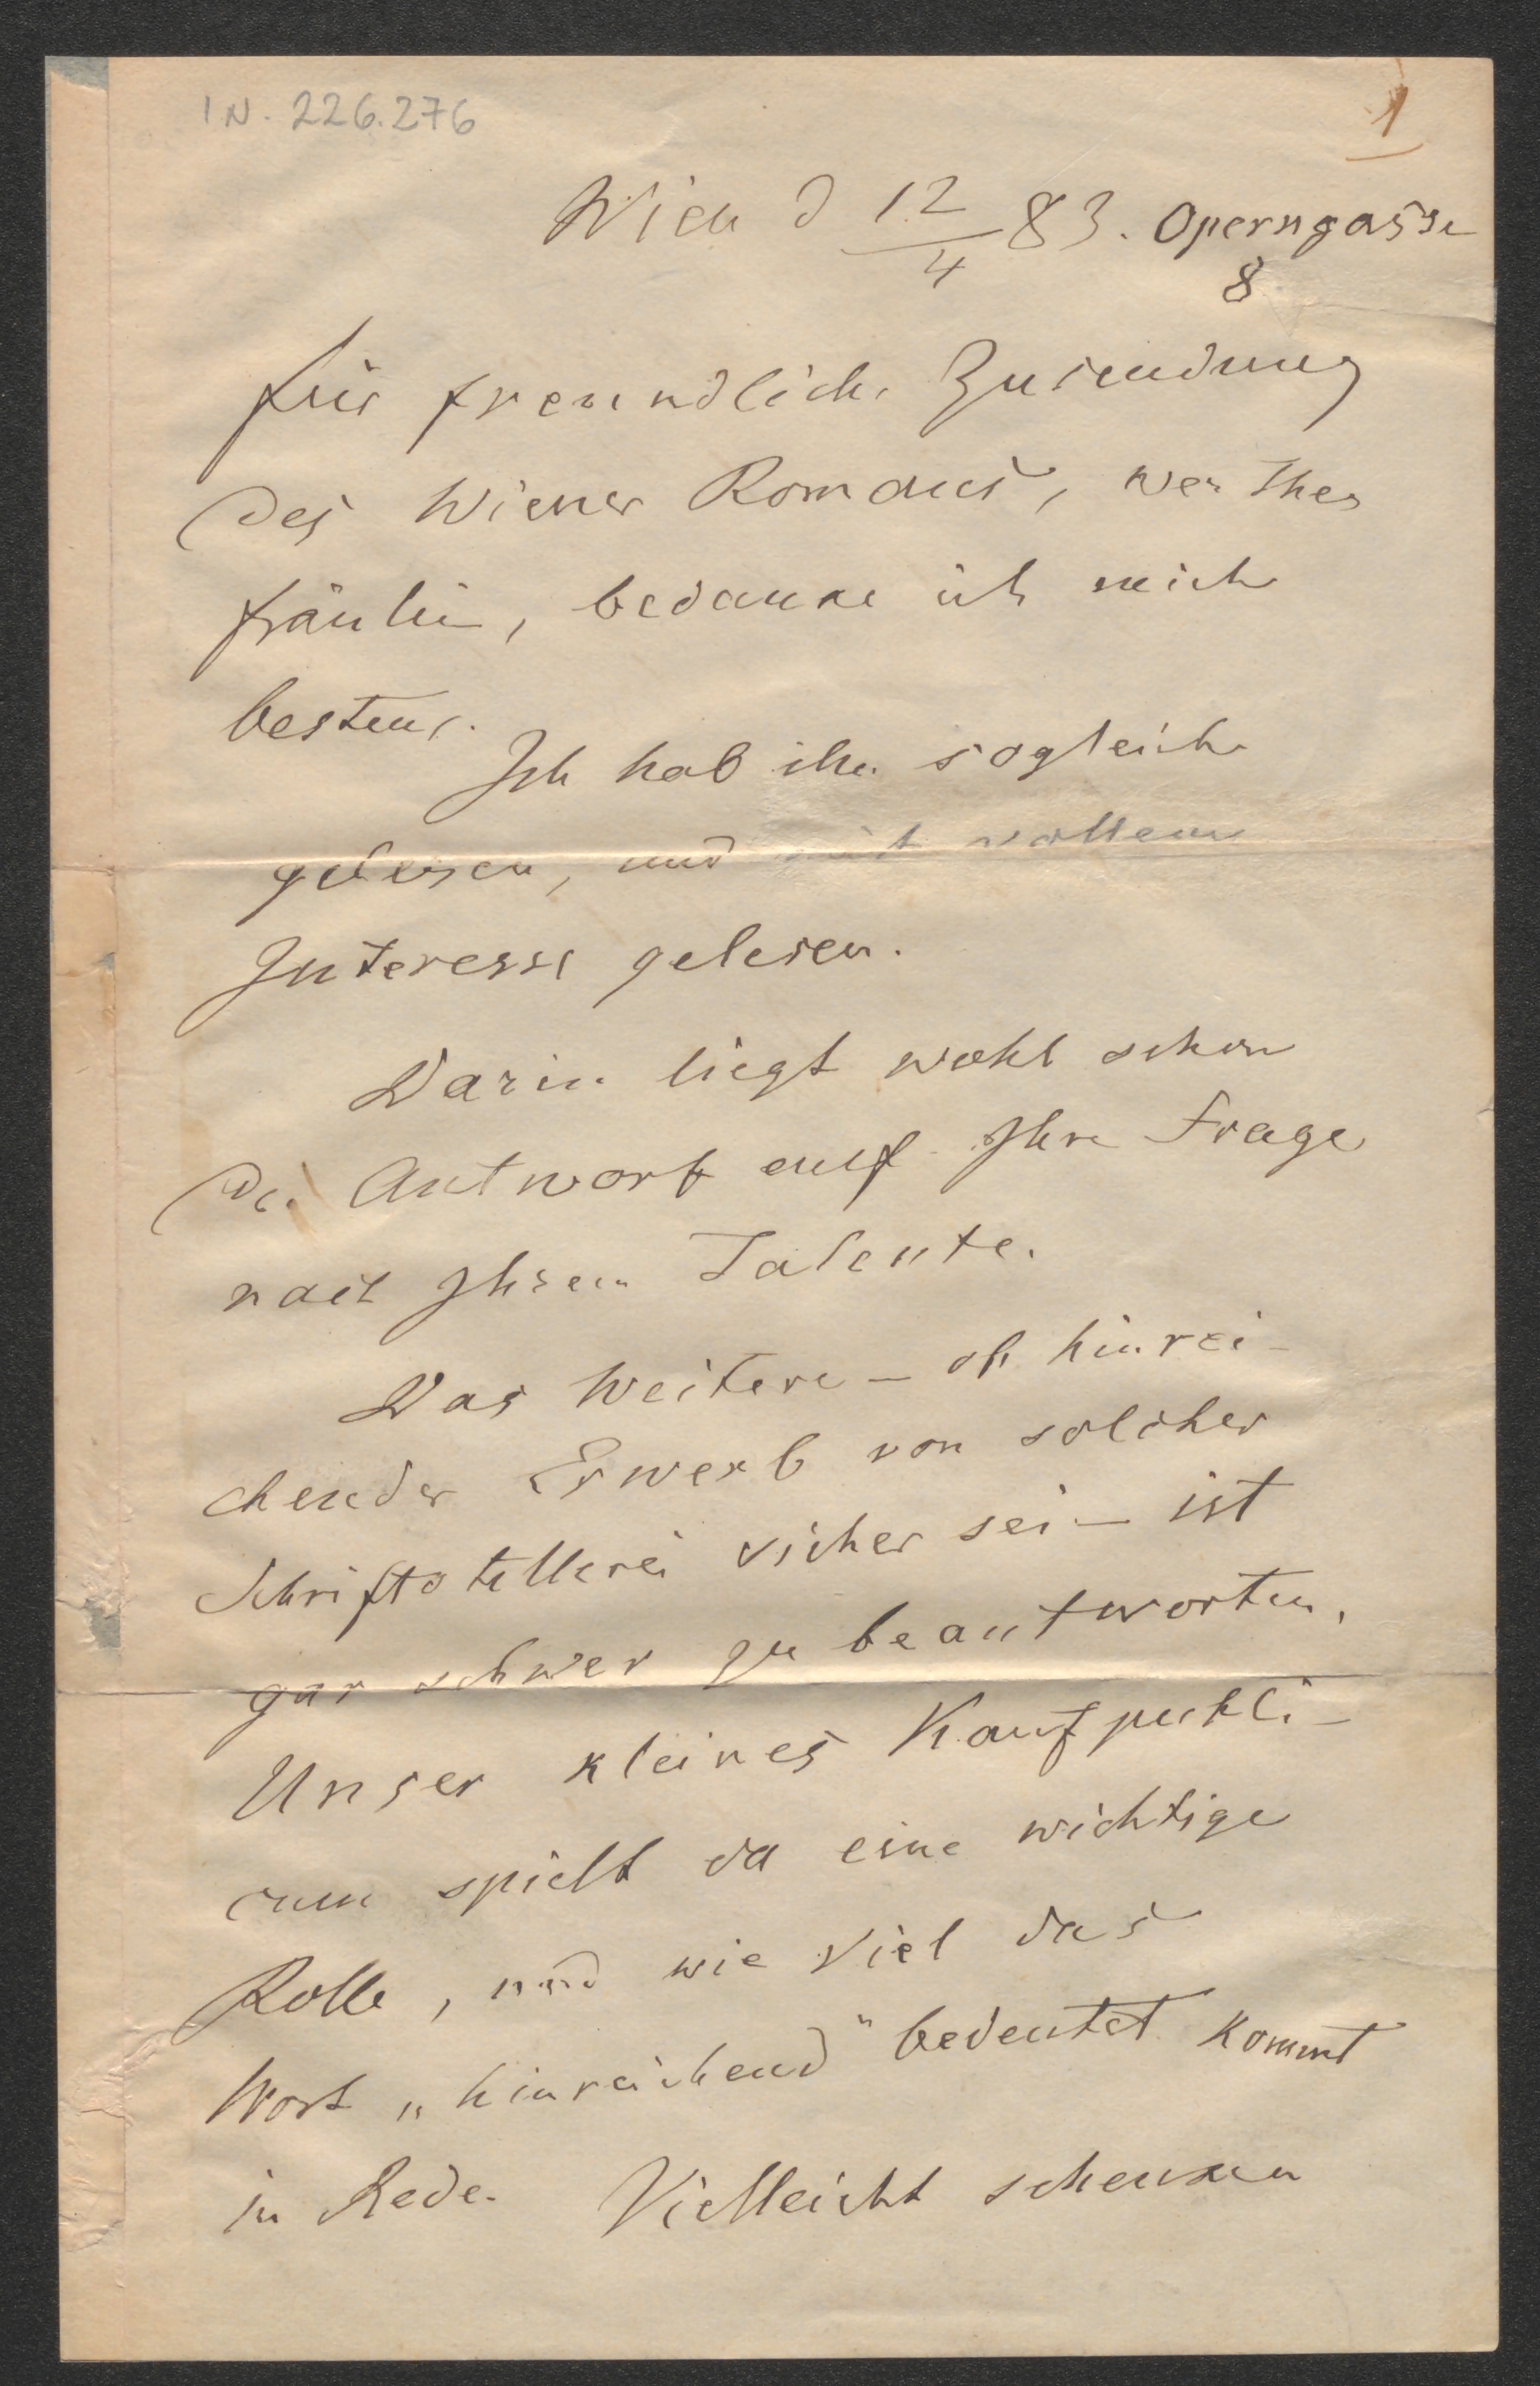 IN. 226.276
1
Wien d 12/4 83. Operngasse
8
Für freundliche Zusendung
des Wiener Romans, werthes
Fräulein, bedanke ich mich
bestens.
Ich hab ihn sogleich
gelesen, und mit vollem
Interesse gelesen.
Darin liegt wohl schon
die Antwort auf Ihre Frage
nach Ihrem Talente.
Das Weitere – ob hinrei-
chender Erwerb von solcher
Schriftstellerei sicher sei – ist
gar schwer zu beantworten.
Unser kleines Kaufpubli-
cum spielt da eine wichtige
Rolle, und wie viel das
Wort „hinreichend" bedeutet kommt
in Rede. Vielleicht schenken